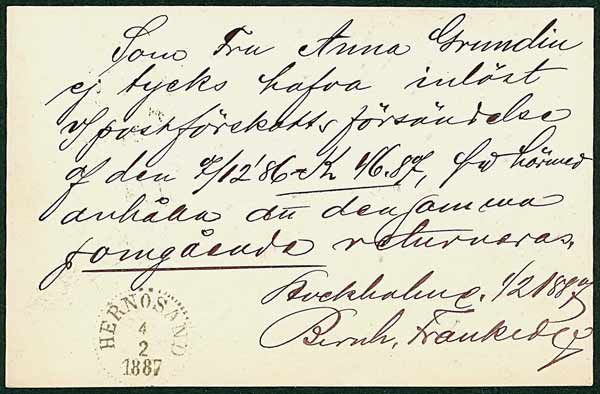 Som Fru Anna Grundin
ej tycks hafva inlöst
postförskotts försändelse
af den 7/12'86 K 16.87, få härmed
anhålla att densamma
omgående returneras.
Stockholm d. 1/2 1887
Bernh.
HERNÖSAND
4
2
1887